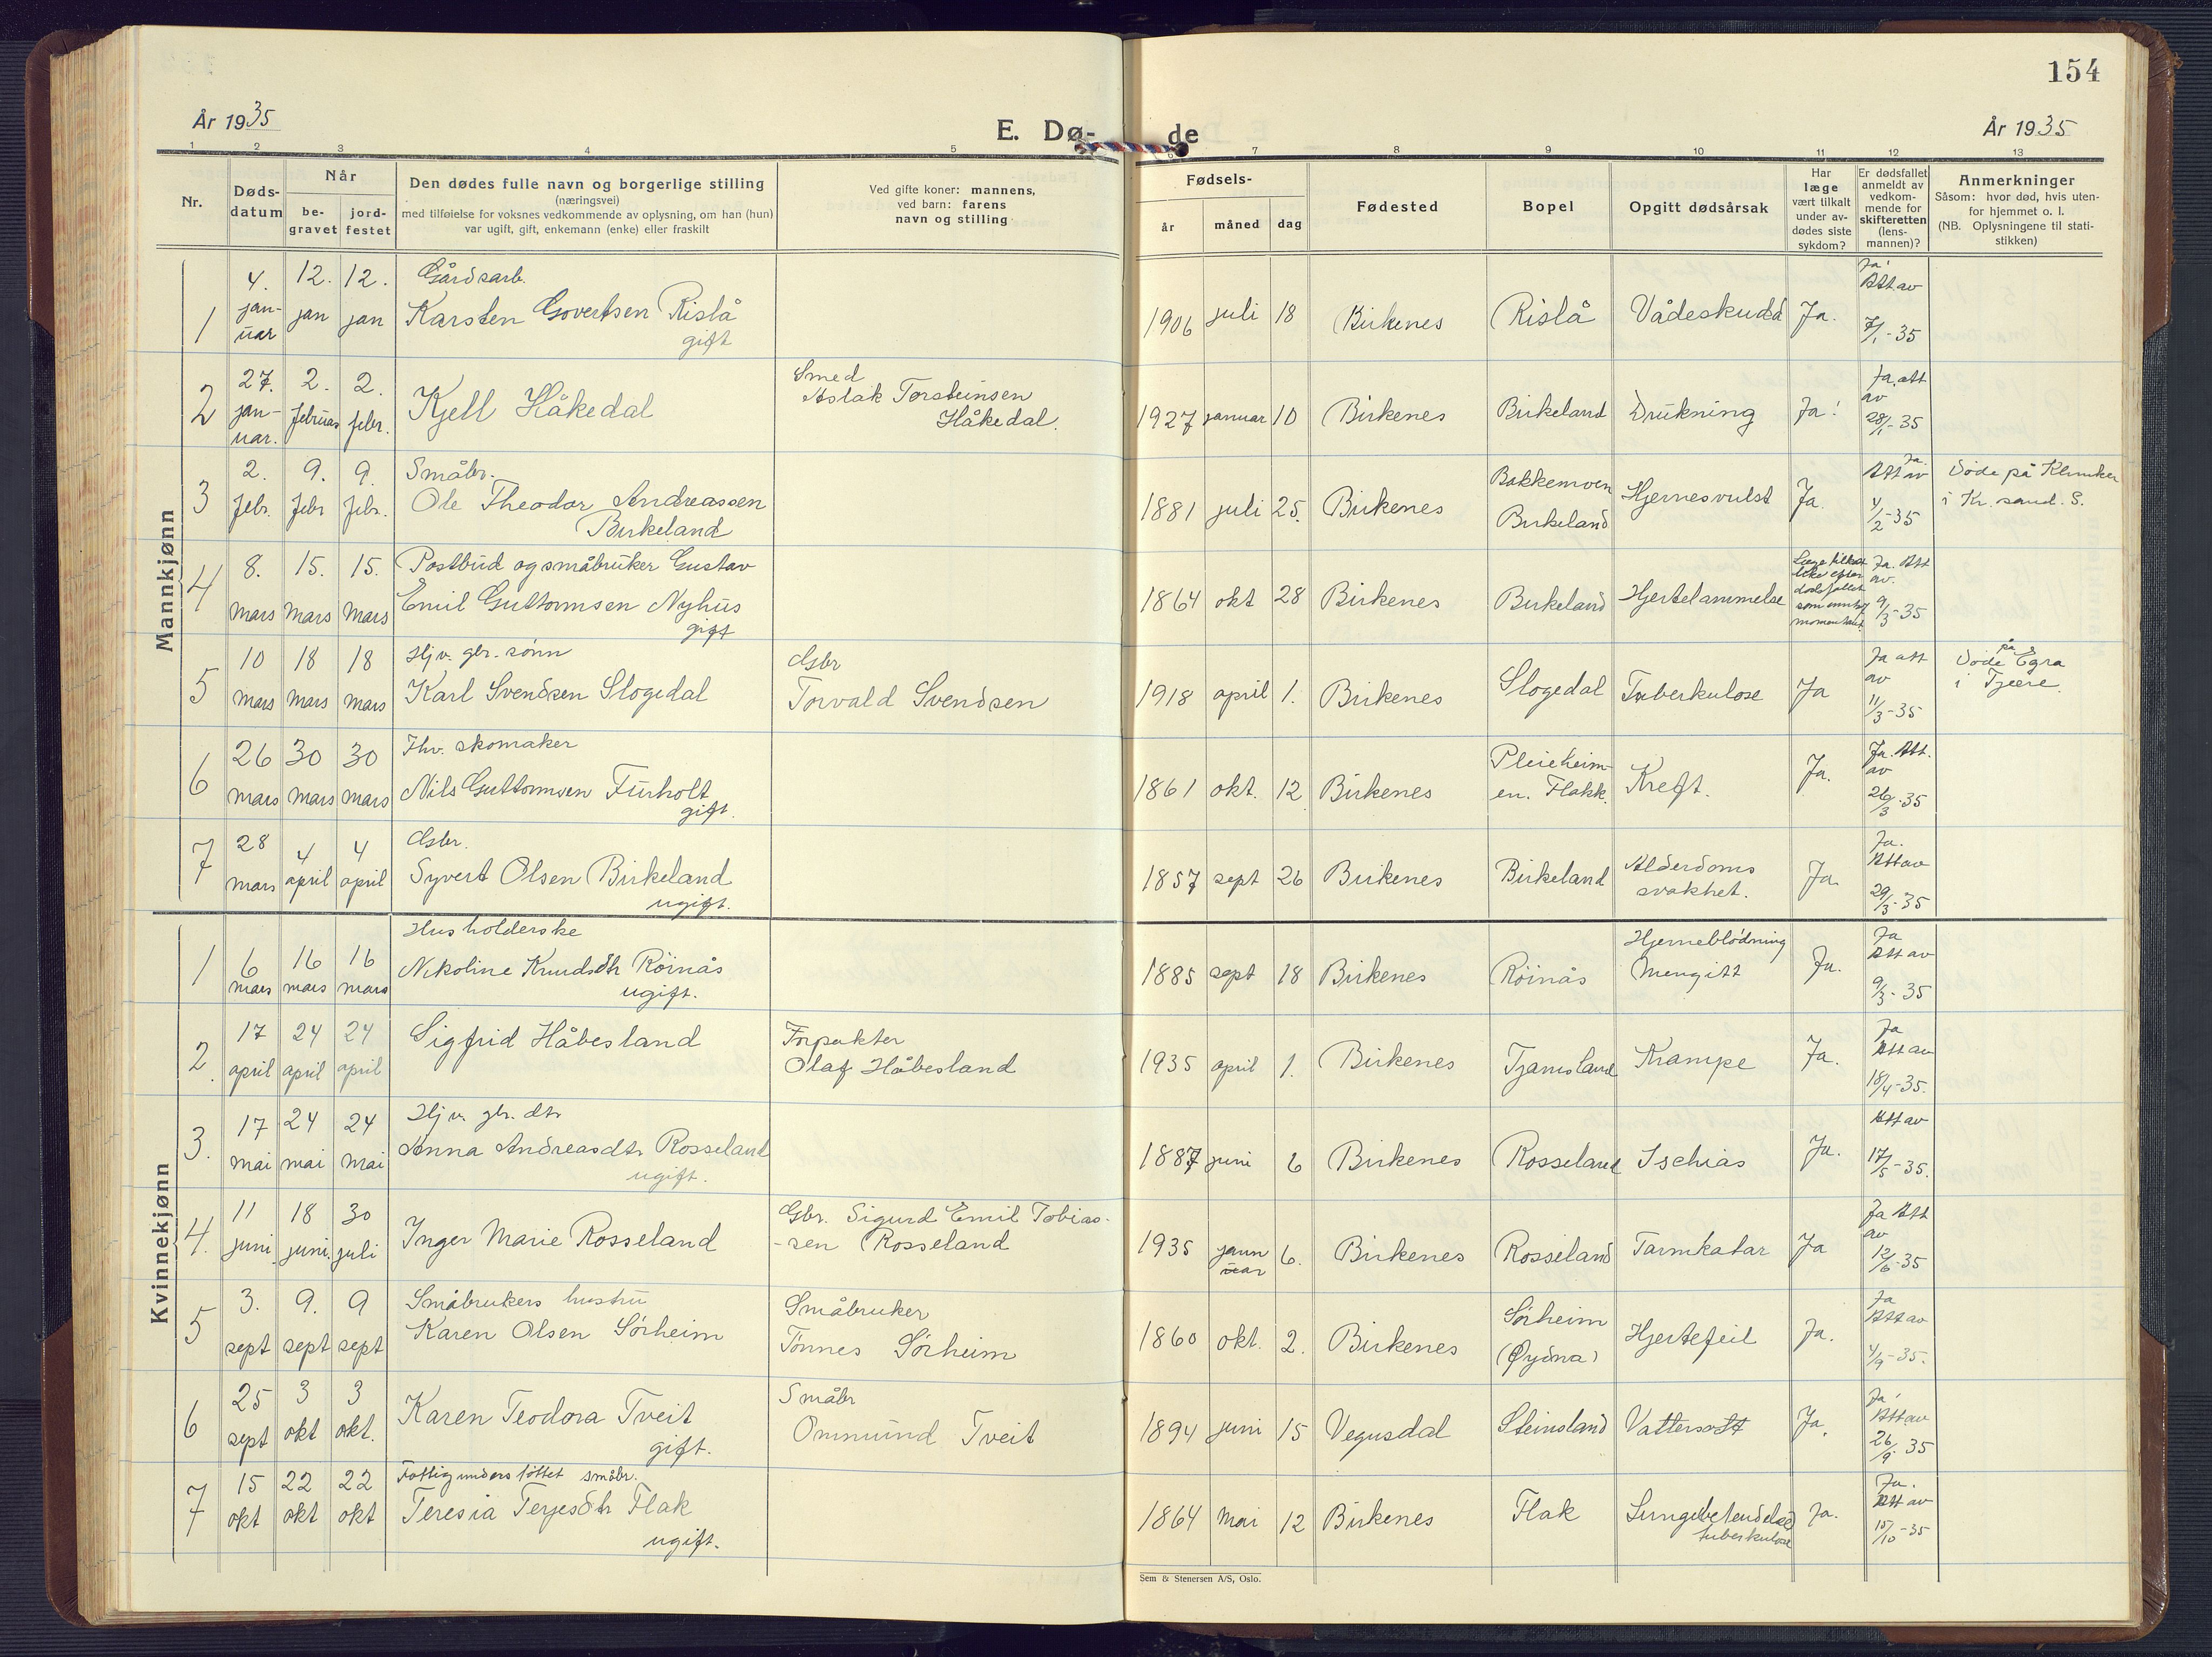 154
År 1935
E. Dø-
de
År 1935
1 2 3 4 5 6 7 8 9 10 11 12 13
Nr.
Døds-
datum
Når
be-
gravet
jord-
festet
Den dødes fulle navn og borgerlige stilling
(næringsvei)
med tilføielse for voksnes vedkommende av oplysning, om han (hun)
var ugift, gift, enkemann (enke) eller fraskilt
Ved gifte koner: mannens,
ved barn: farens
navn og stilling
Fødsels-
år måned dag
Fødested
Bopel
Opgitt dødsårsak
Har
læge
vært tilkalt
under av-
dødes siste
sykdom?
Er dødsfallet
anmeldt av
vedkom-
mende for
skifteretten
(lens-
mannen)?
Anmerkninger
Såsom: hvor død, hvis uten-
for hjemmet o. l.
(NB. Oplysningene til stati-
stikken)
Mannkjønn
1
4.
jan-
uar
12.
jan
12.
jan
Gårdsarb.
Karsten Govertsen Rislå
gift
1906 juli 18 Birkenes Rislå Vådeskudd Ja.
Ja!
Att av
7/1-35
2
27.
jan-
uar.
2.
februar
2.
febr.
Kjell Håkedal
Smed
Aslak Torsteinsen
Håkedal.
1927 januar 10 Birkenes Birkeland Drukning Ja!
Ja. att
av
28/1-35
3
2.
febr.
9.
febr
9.
febr.
Småbr.
Ole Theodor Andreassen
Birkeland
1881 juli 25. Birkenes
Bakkemoen
Birkeland
Hjernesvulst Ja.
Ja.
Att av
4/2-35
Døde på Klinikken
i Kr. sand. S.
4
8.
mars
15.
mars
15.
mars
Postbud og småbruker Gustav
Emil Guttormsen Nyhus
gift
1864 okt 28 Birkenes Birkeland Hjertelammelse
Læge tilkalt
like efter
dødsfallet
som inntraf
momentant.
Ja. Att
av.
9/3-35
5
10
mars
18
mars
18
mars
Hjv. gbr. sønn
Karl Svendsen Slogedal
Gbr
Torvald Svendsen
1918 april 1. Birkenes Slogedal Tuberkulose Ja
Ja att
av
11/3-35
på
Døde Egra
i Tjære.
6
26
mars
30
mars
30
mars
Fhv. skomaker
Nils Guttormsen Furholt
gift.
1861 okt. 12 Birkenes
Pleieheim-
en. Flakk.
Kreft. Ja.
Ja. Att.
av
26/3-35
7
28
mars
4
april
4
april
Gbr.
Syvert Olsen Birkeland
ugift.
1857 sept 26 Birkenes Birkeland
Alderdoms
svakhet.
Ja.
Ja.
Att av
29/3-35
Kvinnekjønn
1
6
mars
16
mars
16
mars
Husholderske
Nikoline Knudsdtr Röinås
ugift.
1885 sept 18 Birkenes Röinås
Hjerneblödning
Mengitt
Ja.
Ja
Att av
9/3-35
2.
17
april
24
april
24
april
Sigfrid Håbesland
Forpakter
Olaf Håbesland
1935 april 1. Birkenes Tjamsland Krampe Ja.
Ja
Att av
18/4-35.
3.
17
mai
24
mai
24
mai
Hjv. gbr. dtr
Anna Andreasdtr Rosseland
ugift.
1887 juni 6 Birkenes Rosseland Ischias Ja.
Att av
17/5-35.
4.
11
juni
18
juni.
30
juli
Inger Marie Rosseland
Gbr. Sigurd Emil Tobias-
-sen Rosseland
1935 janu
uar 6. Birkenes Rosseland Tarmkatar Ja
Ja Att
av
12/6-35
5
3.
sept
9.
sept
9
sept
Småbrukers hustru
Karen Olsen Sörheim
Småbruker
Tönnes Sörheim
1860 okt. 2. Birkenes
Sörheim
(Øydna)
Hjertefeil Ja.
Ja
Att av
4/9-35.
6
25
sept
3
okt
3
okt.
Karen Teodora Tveit
gift.
Småbr
Ommund Tveit
1894 juni 15 Vegusdal Steinsland Vattersott Ja.
Ja!
Att av
26/9-35
7
15
okt
22
okt
22
okt
Fattigunderstöttet småbr.
Teresia Terjesdtr Flak
ugift.
1864 Mai 12 Birkenes Flak
Lungebetendelse
tuberkulose
Ja.
Ja.
Att av
15/10-35
Sem & Stenersen A/S, Oslo.